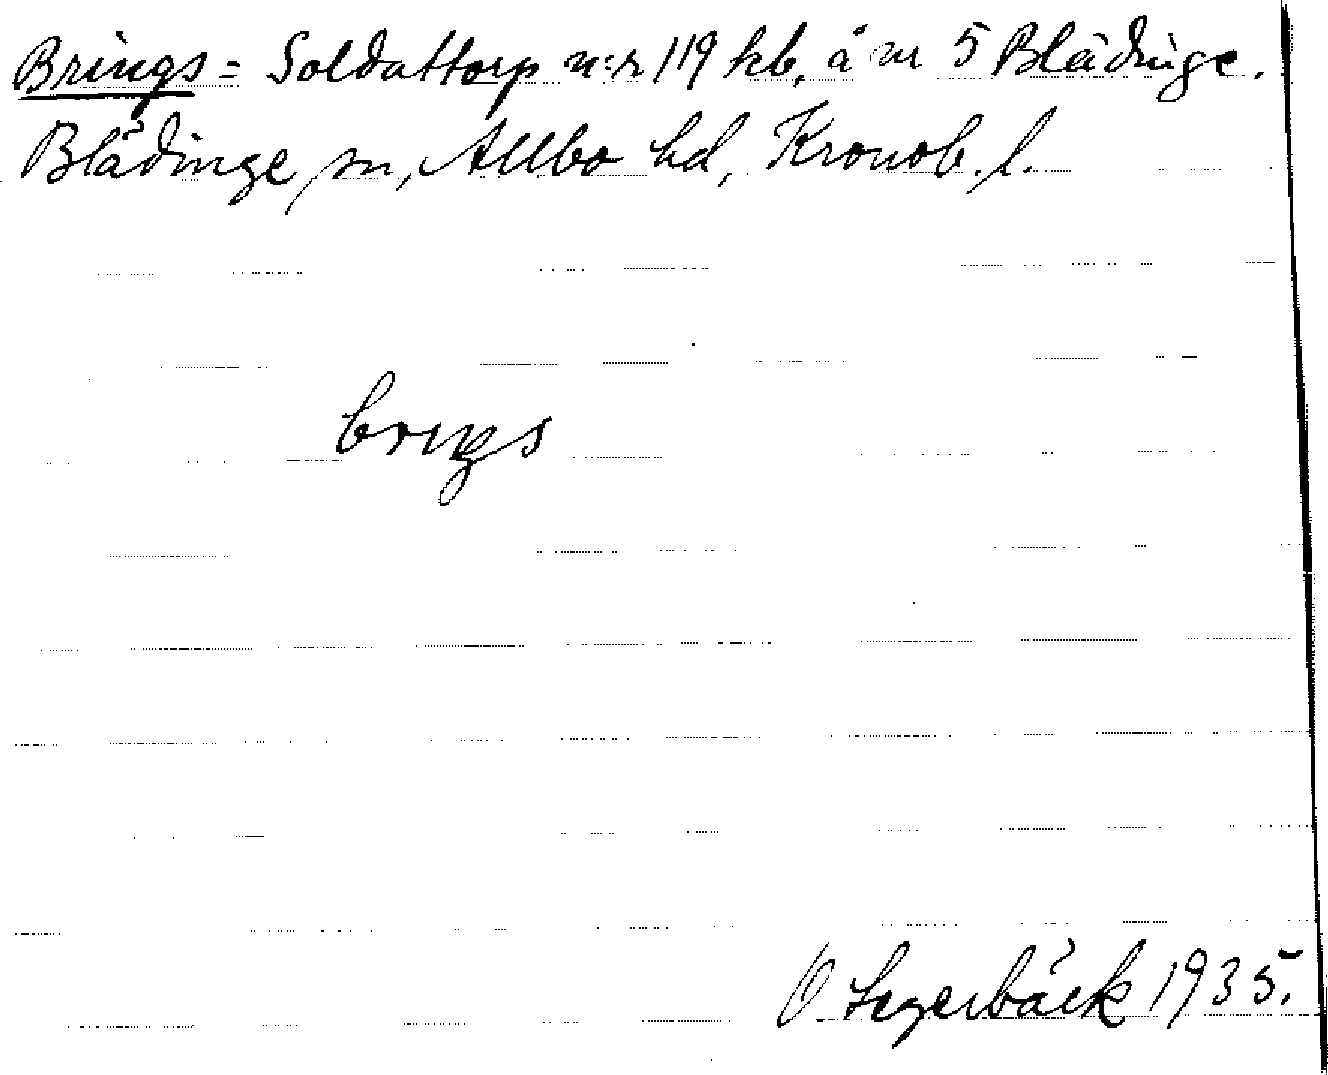 Brings = Soldattorp n:r 119 kb. å nr 5 Blädinge.
Blädinge sn, Allbo hd, Kronob. l.
brings
O Segerbäck 1935.